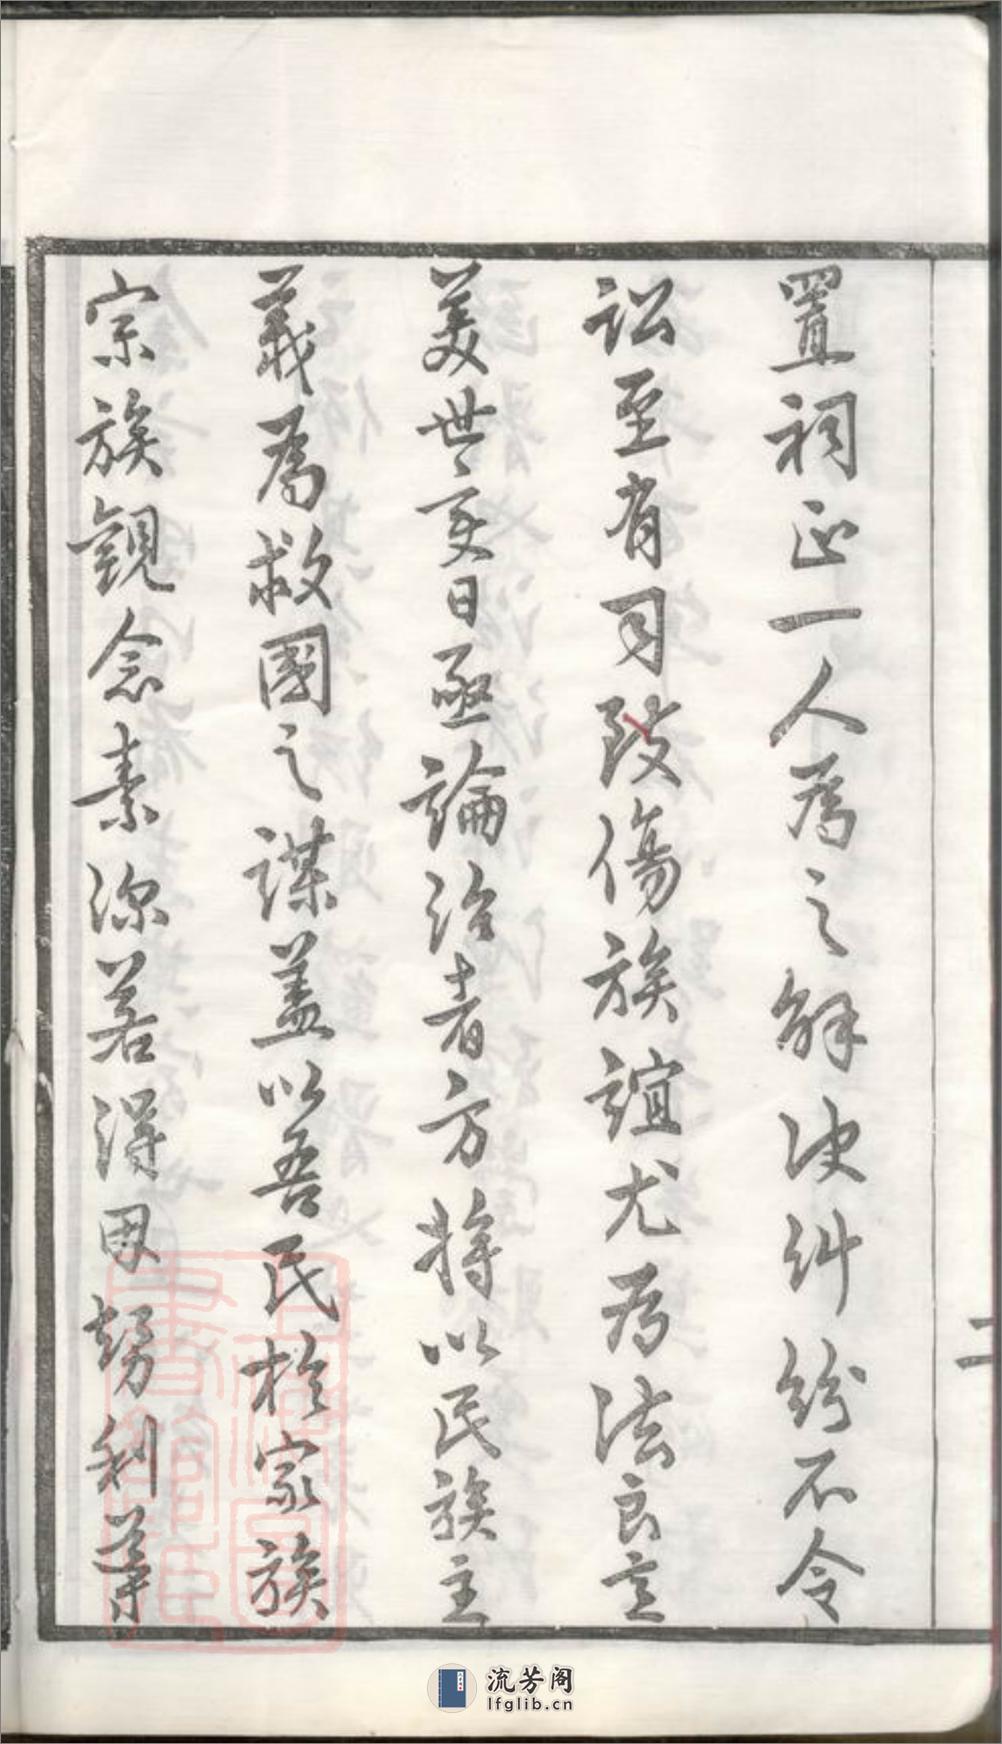 二
置祠正一人為之解決糾紛不令
訟至有司致傷族誼尤為法良意
美世变日亟論治者方将以民族主
義為救國之謀盖以吾民於家族
宗族觀念素深若得因勢利導
上海圖書館藏
流芳阁
lfglib.cn